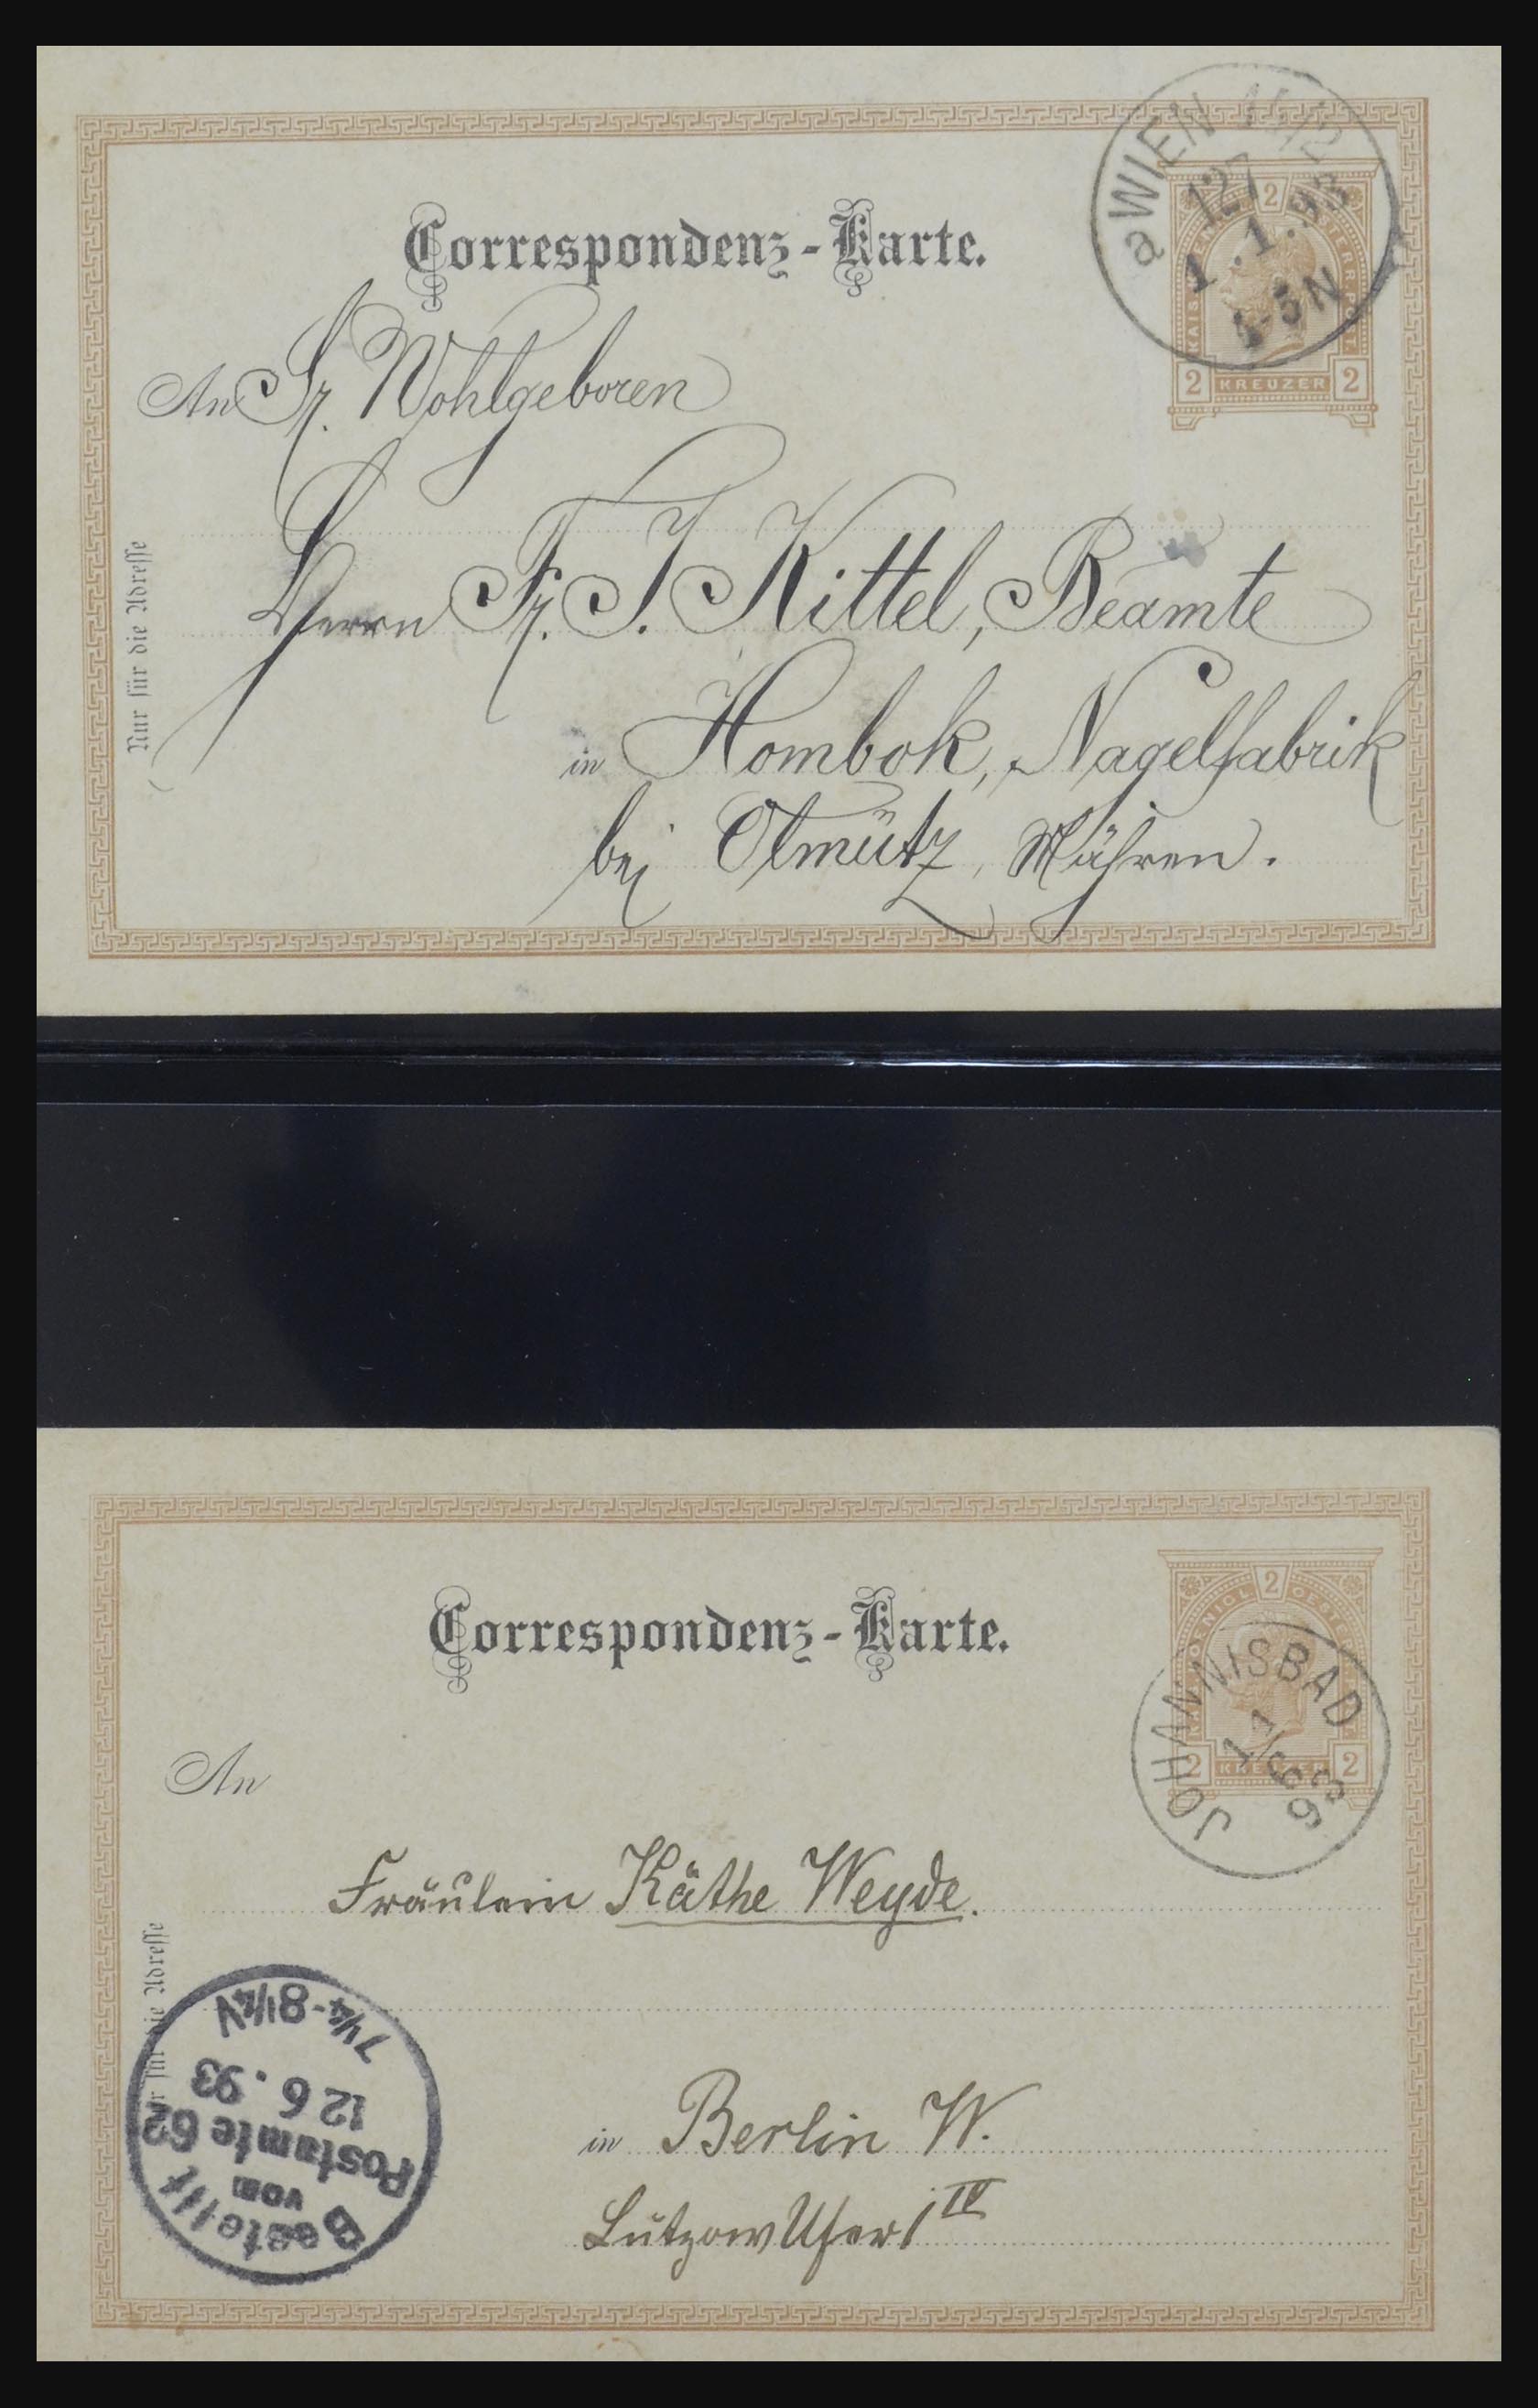 Correspondenz-Karte.
a WIEN
127
1.1.93
-5N
2
KREUZER
2 2
An Sr. Wohlgeboren
Herrn Fr. J. Kittel, Beamte
in Hombok, Nagelfabrik
bei Olmütz, Mähren.
Nur für die Adresse
Correspondenz-Karte.
2
KREUZER
2 2
JOHANNISBAD
93
An
Fräulein Käthe Weyde.
in Berlin W.
Lützow Ufer 1 IV
Nur für die Adresse
Bestellt
vom
Postamte 62
12 6. 93
7¼-8¼V